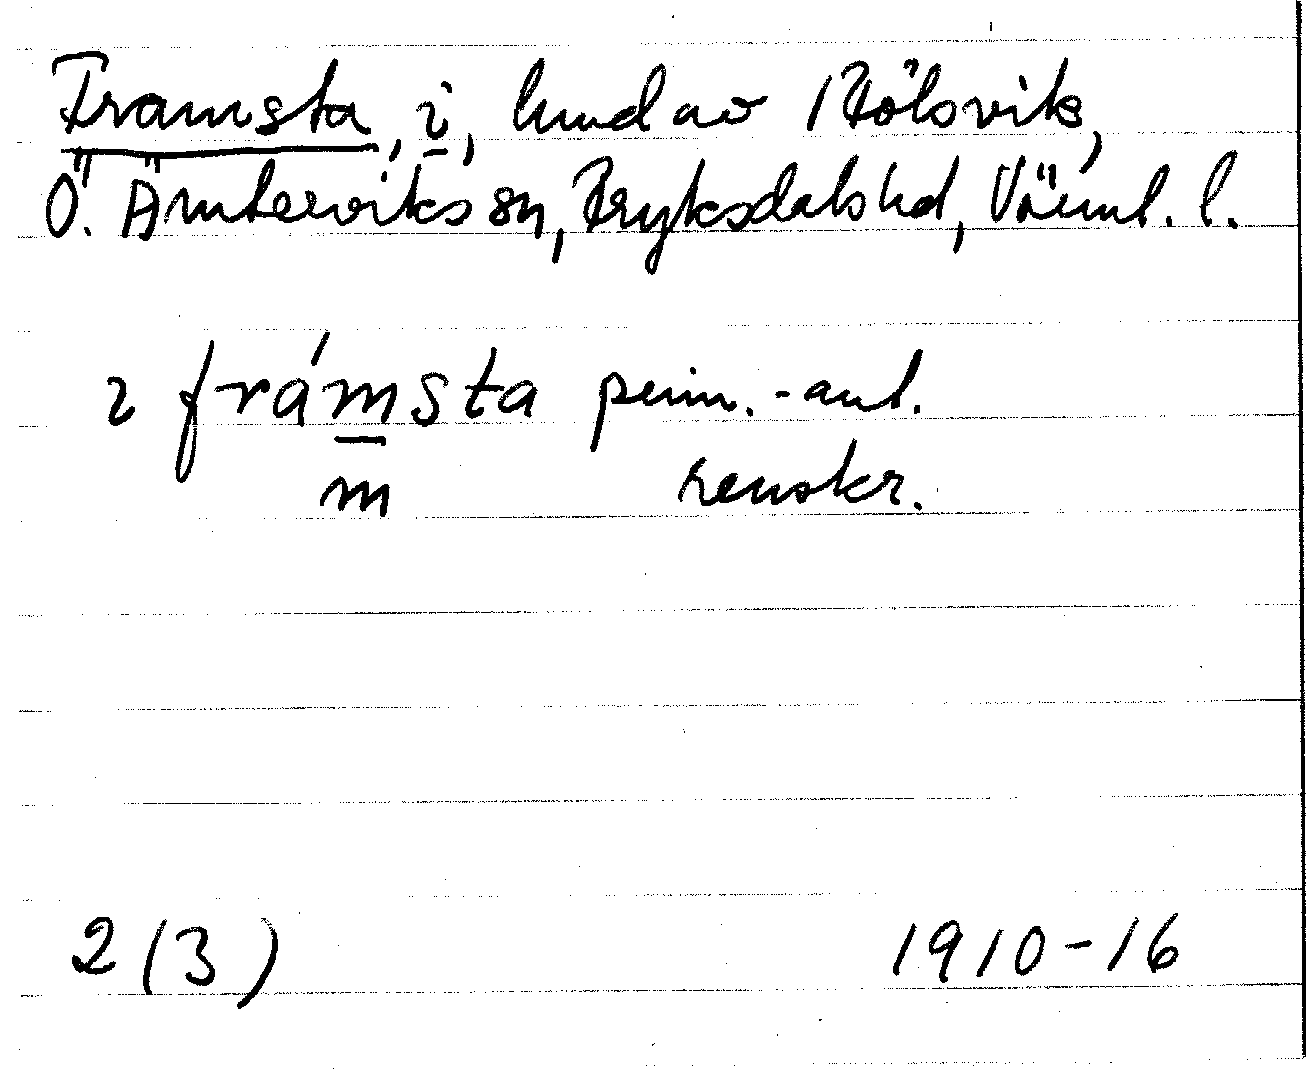 Framsta, i, hmd av Kölsvik,
Ö. Ämterviks sn, Fryksdals hd, Värml. l.
i framsta penn.-ant.
m renskr.
2(3) 1910-16